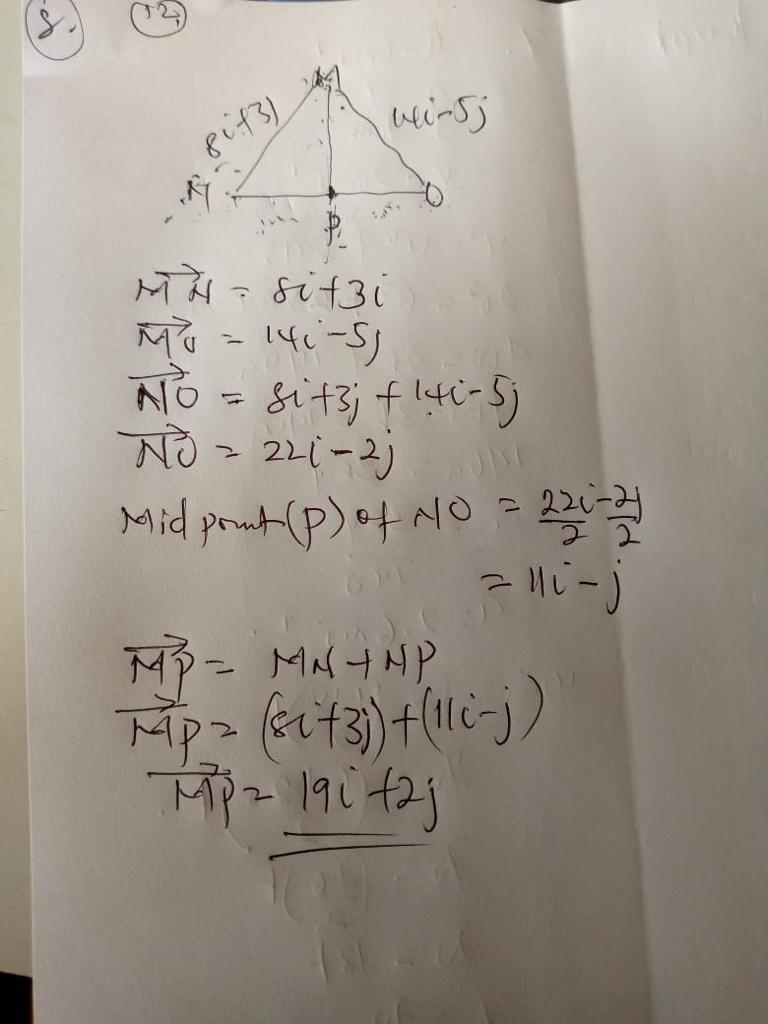 8. 12.
M
8i+3j
14i-5j
N
O
P
MN = 8i+3i
MO = 14i-5j
NO = 8i+3j + 14i-5j
NO = 22i-2j
Midpoint(P) of NO = 22i/2 - 2j/2
= 11i-j
MP = MN+NP
MP = (8i+3j)+(11i-j)
MP = 19i+2j